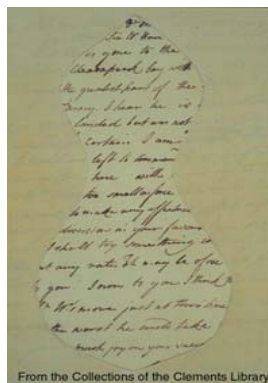 Sir W. Howe
is gone to the
Chesapeak bay with
the greatest part of the
army. I hear he is
landed but am not
certain. I am
left to command
here with
too small a force
to make any effectual
diversion in your favour
I shall try something
at any rate. It may be of use
to you. I own to you I think
W's move just at this time
the worst he could take
much joy on your
From the Collections of the Clements Library